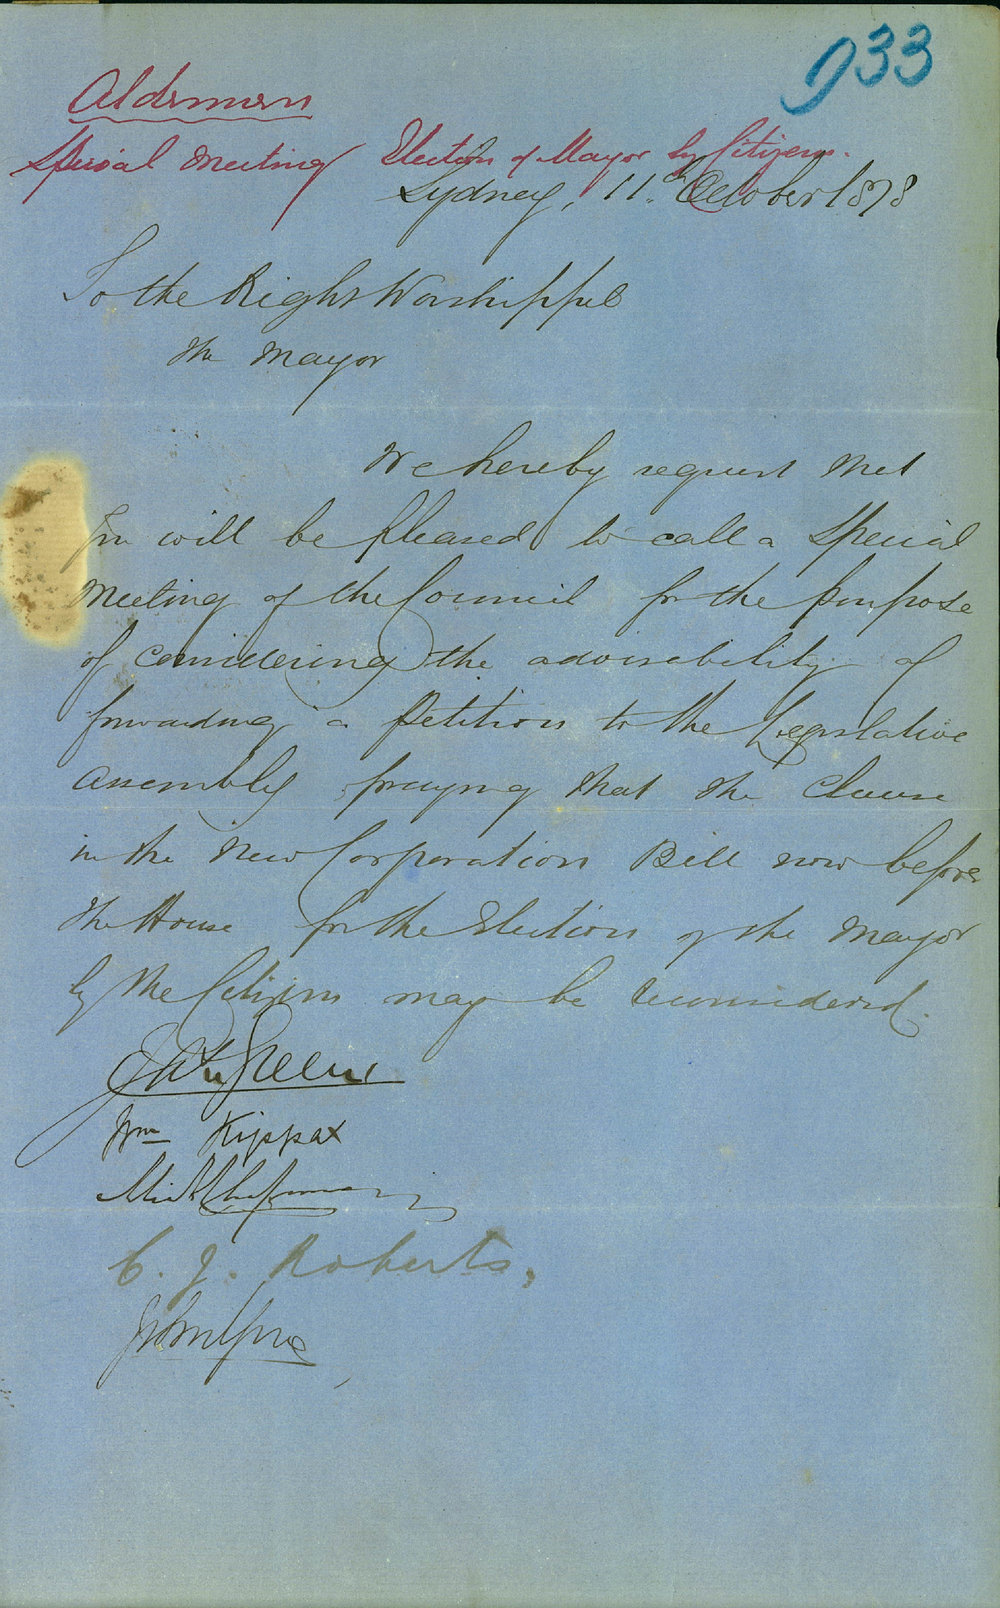 933
Aldermen
Special Meeting Election of Mayor by Citizens.
Sydney, 11th October 1878
To the Right Worshipful
The Mayor
We hereby request that
you will be pleased to call a Special
Meeting of the Council for the purpose
of considering the advisability of
forwarding a Petition to the Legislative
Assembly praying that the Clause
in the New Corporation Bill now before
the House for the Election of the Mayor
by the Citizens may be reconsidered.
Greene
Wm Kippax
Mich Chapman
C. J. Roberts,
John